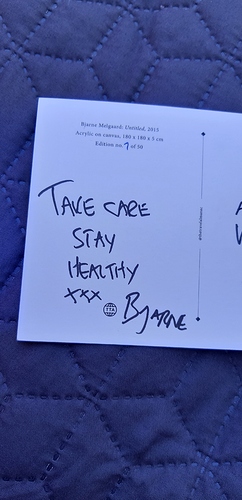 Bjarne Melgaard: Untitled, 2015
Acrylic on canvas, 180 x 180 x 5 cm
Edition no. 7 of 50
TAKE CARE
STAY
HEALTHY
xxx
TTA
BJARNE